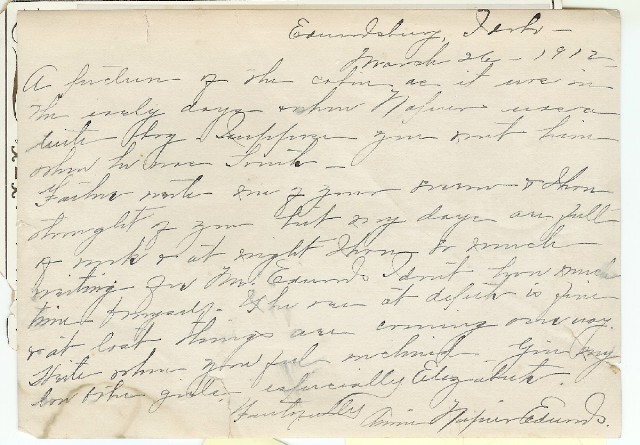 Edundsburg, Idaho —
March 26 - 1912
A picture of the cabin as it was in
the early days when Napier was a
little boy Suppose you met him
when he was South —
Father wrote me of your so I have
thought of you but my days are full
of work & at night I have so much
writing for Mr. Edunds I don't have much
time to myself. The ore at depth is fine
& at last things are coming our way.
Write when you feel inclined. Give my
love to the girls especially Elizabeth.
Faithfully Annie Napier Edunds.